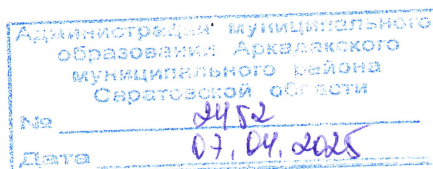 Администрация муниципального
образования Аркадакского
муниципального района
Саратовской области
№ 2452
Дата 07.04.2025